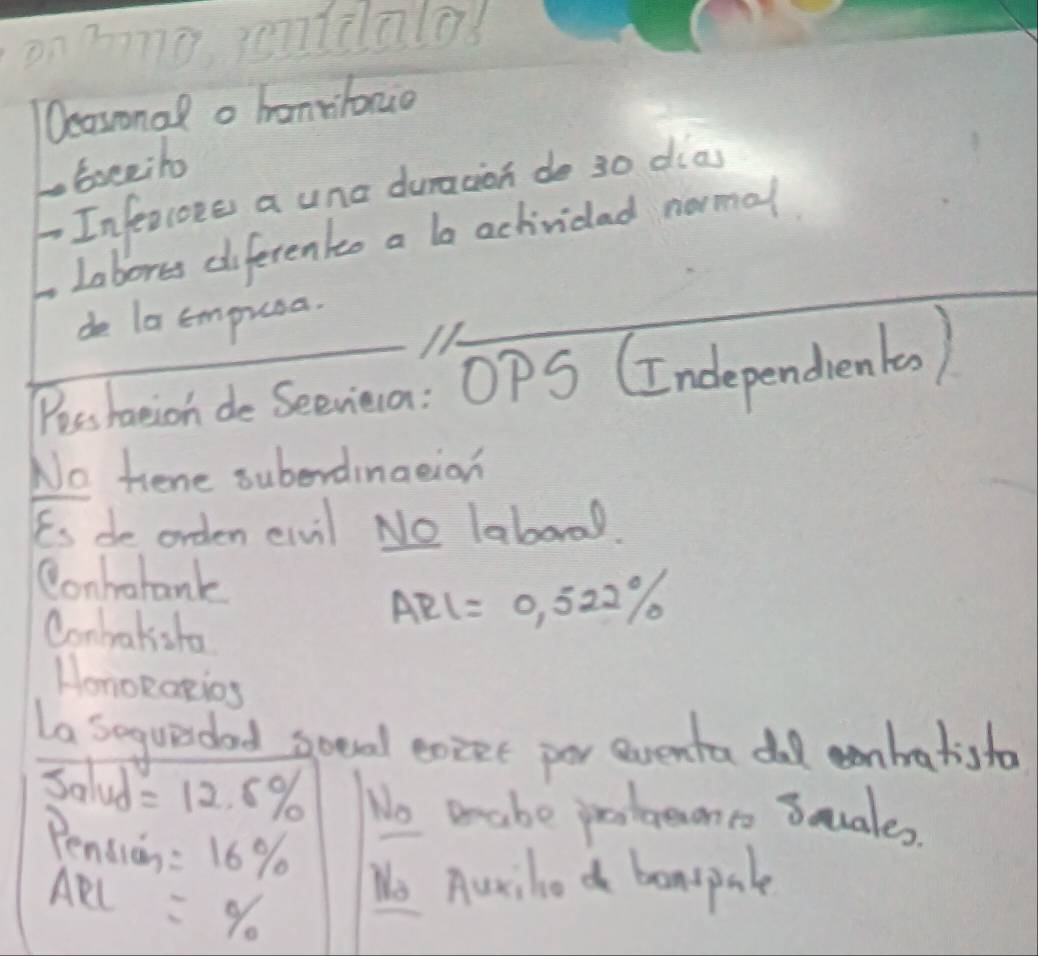 Ocasional o transitorio
→ Escrito
→ Inferiores a una duración de 30 días
→ Labores diferentes a la actividad normal
de la empresa.
Prestación de Servicio: OPS (Independientes)
No tiene subordinación
Es de orden civil NO laboral.
Contratante
ARL = 0,522%
Contratista
Honorarios
La seguridad social corre por cuenta del contratista
Salud = 12.5%
Pensión = 16%
ARL = %
No recibe prestaciones sociales.
No Auxilio de transporte